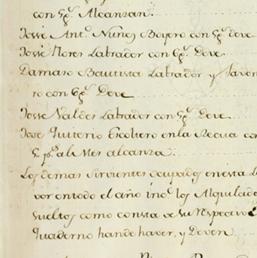 con 6p.s Alcanzan
Jose Ant.o Nuñes Boyero con 6p.s deve
Jose Flores Labrador con 6p.s Deve
Damaso Bautista Labrador y
ro con 6p.s Deve
Jose Valdes Labrador con 6p.s Deve
Jose Quiterio en la Recua con
p.s al Mes alcanza
Los demas Sirvientes ocupados en esta
por todo el año los Alquilado
sueltos como consta de su respectivo
Quaderno han de haver, y Deven